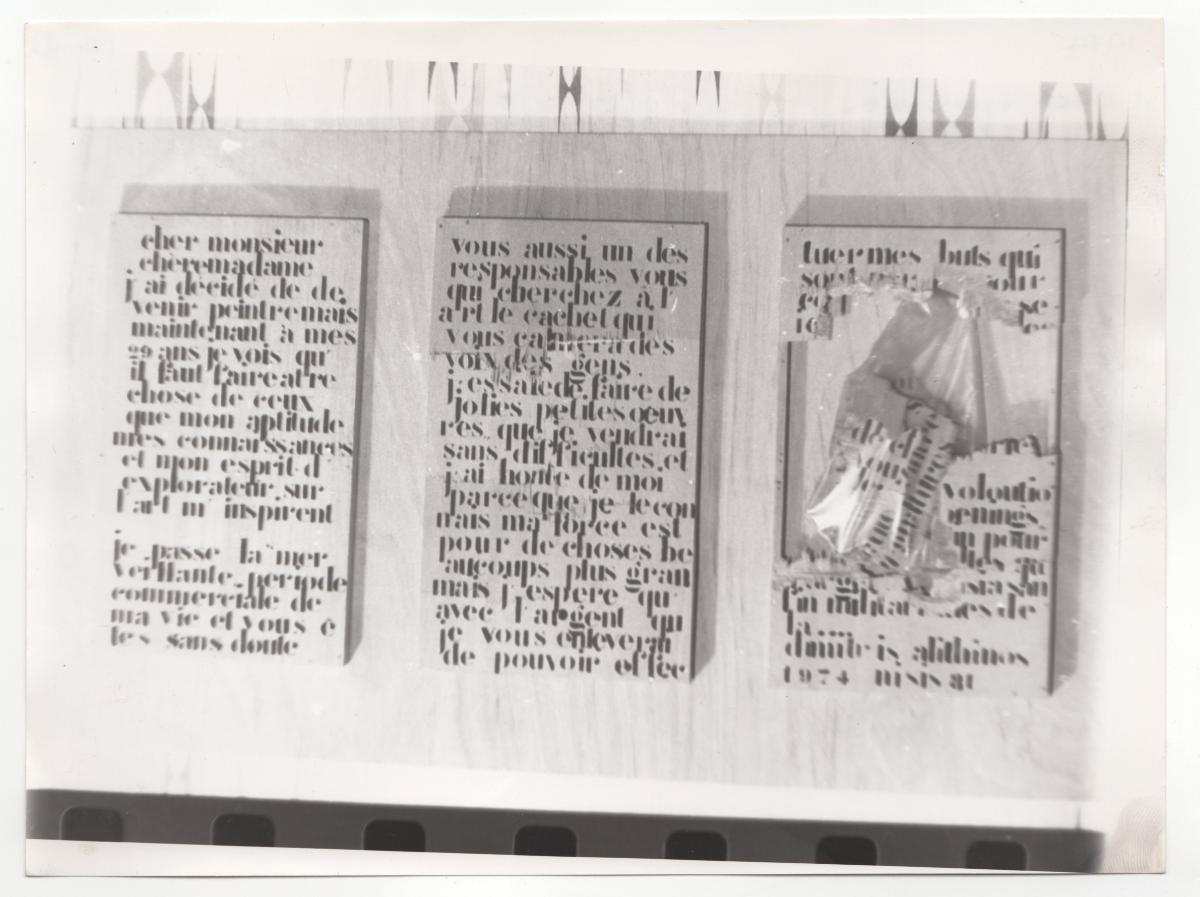 cher monsieur
chèremadame
j'ai décidé de de
venir peintremais
maintenant à mes
29 ans je vois qu'
il faut faire atre
chose de ceux
que mon aptitude
mes connaissances
et mon esprit d'
explorateur sur
l'art m'inspirent
je passe la mer
veillante periode
commerciale de
ma vie et vous ê
tes sans doute
vous aussi un des
responsables vous
qui cherchez à l'
art le cachet qui
vous calmera des
voix des gens.
j'essaie de faire de
jolies petites oeuv
res que je vendrai
sans difficultes, et
j'ai honte de moi
parce que je le con
nais ma force est
pour de choses be
aucoups plus gran
mais j'espere qu'
avec l'argent qu
je vous enleverai
de pouvoir effec
tuer mes buts qui
jour
se
voloutio
pour
la...
dimitris alithinos
1974